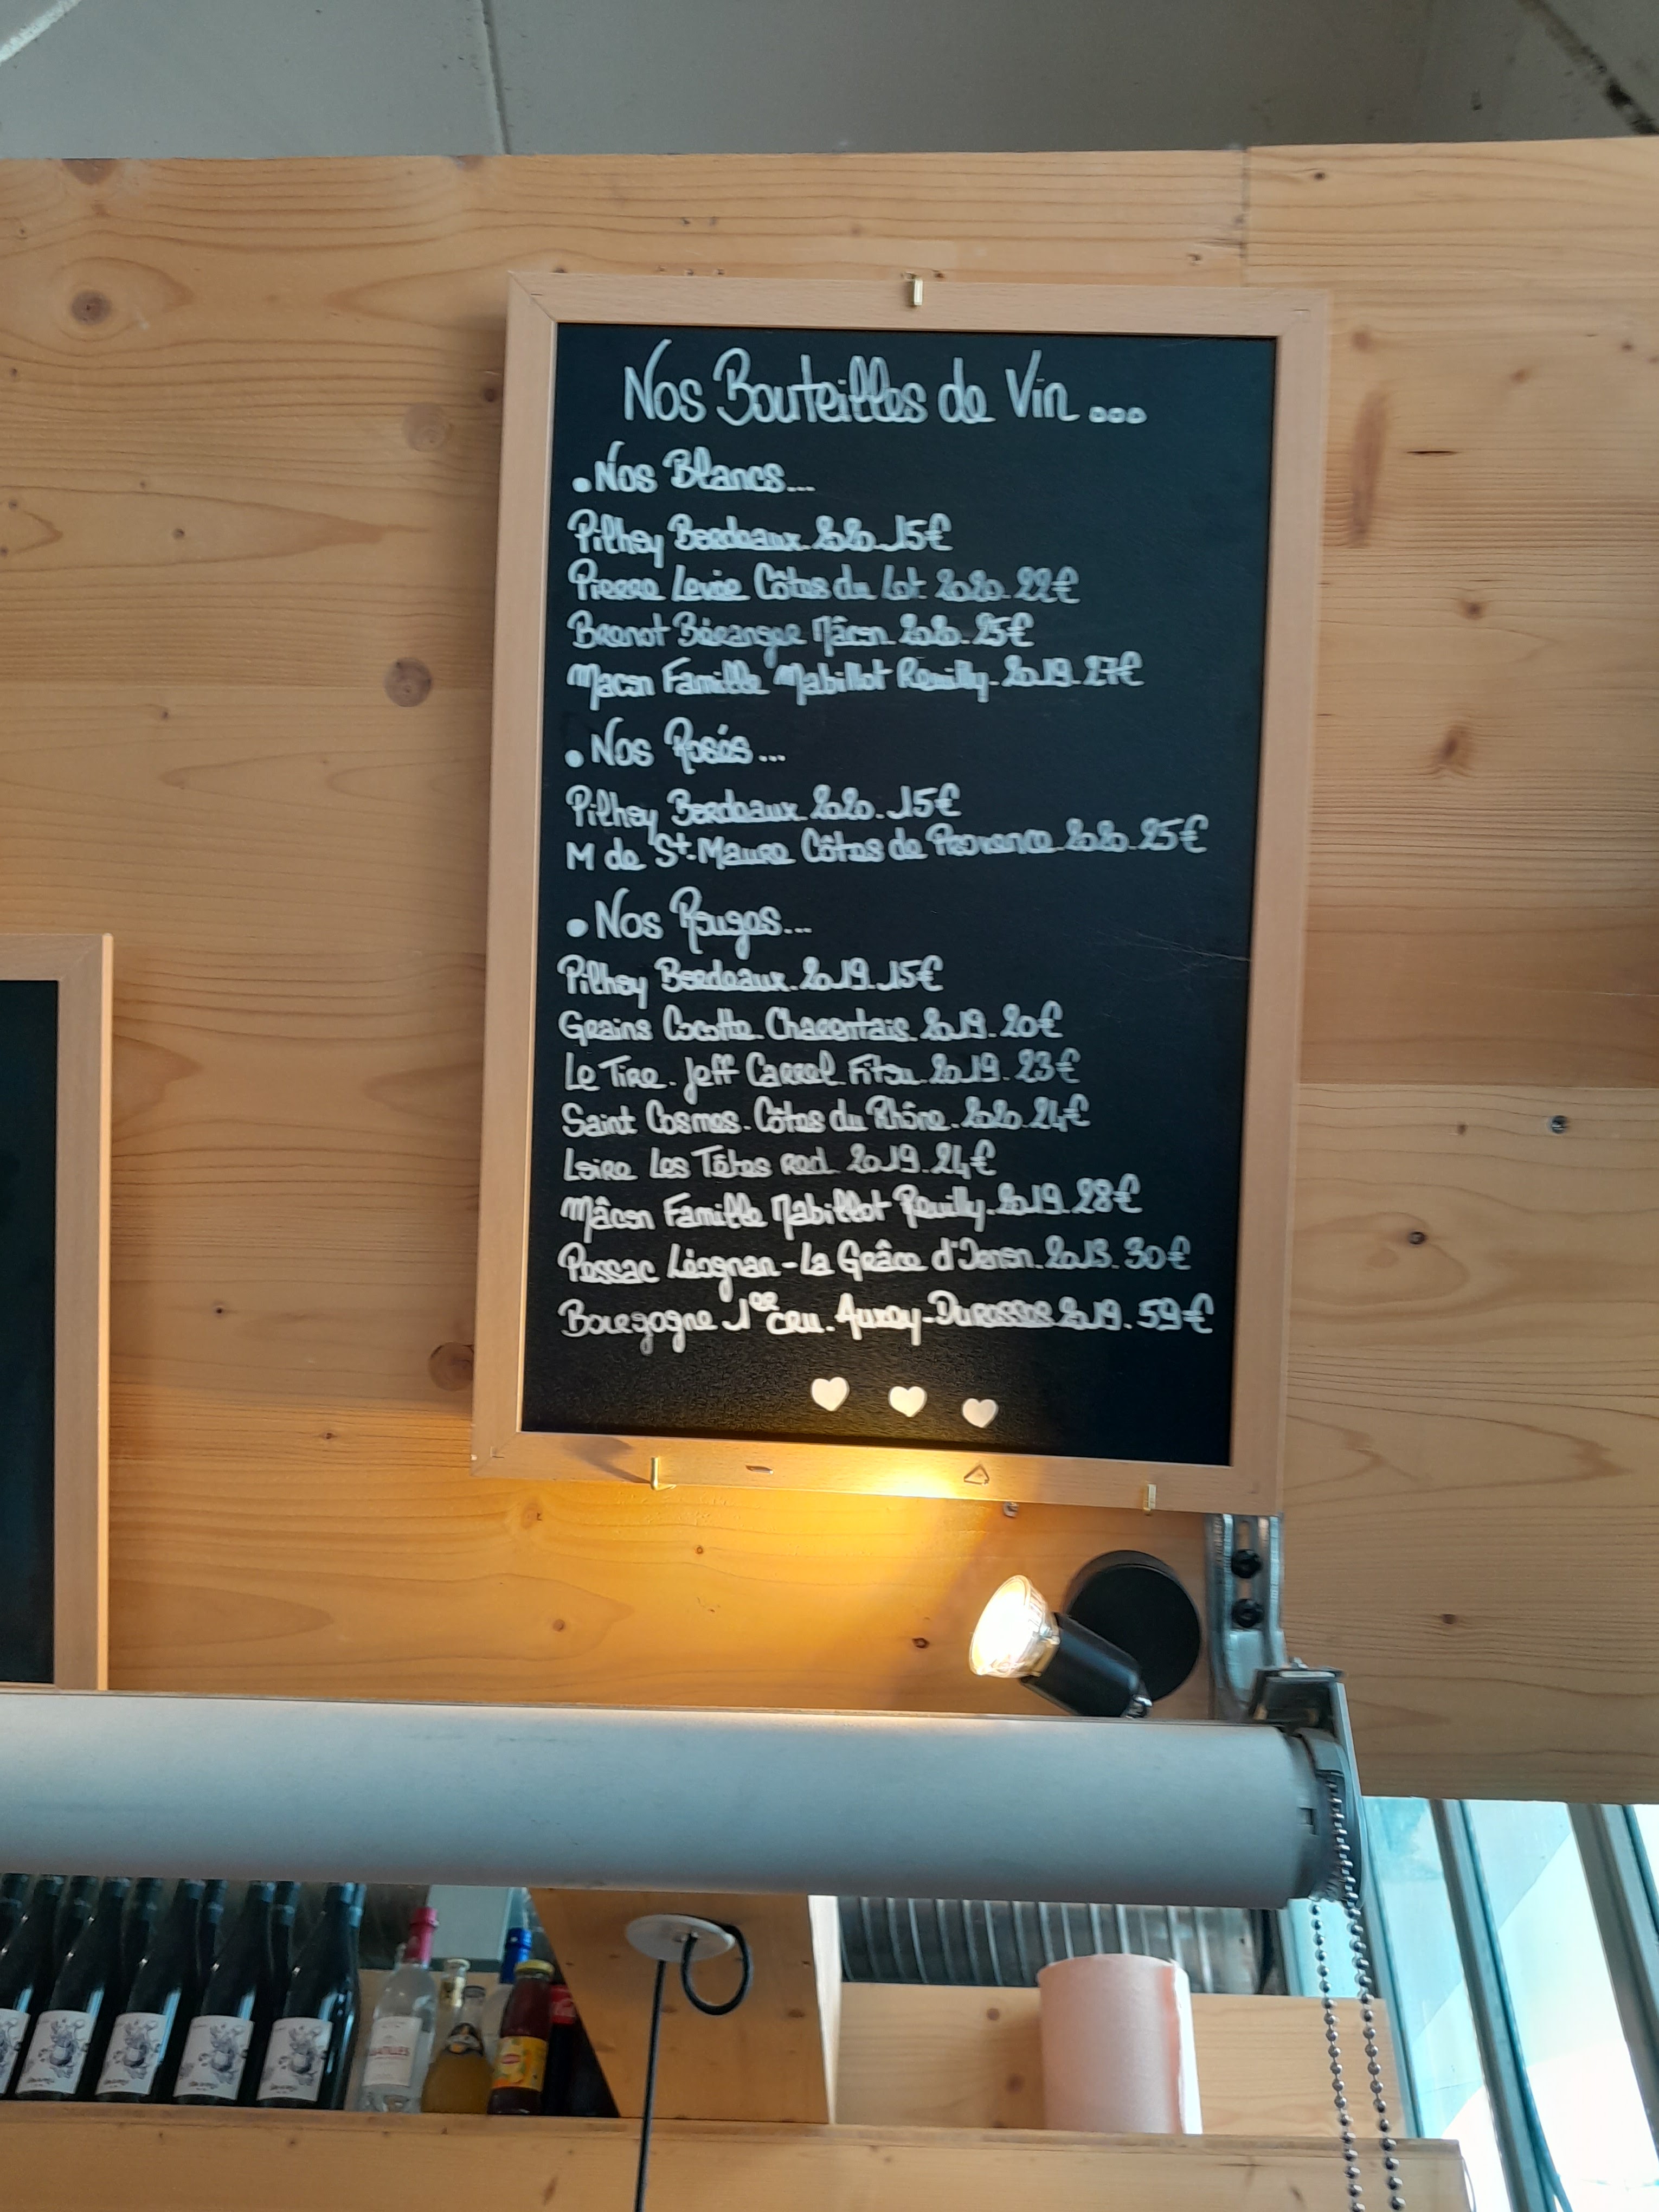 Nos Bouteilles de Vin ...
• Nos Blancs...
Pilhoy Bordeaux. 2020. 15€
Pierre Levée Côtes du Lot. 2020. 22€
Brenot Béranger Mâcon. 2020. 25€
Macon Famille Mabillot Reuilly. 2019. 27€
• Nos Rosés...
Pilhoy Bordeaux. 2020. 15€
M de St-Maure Côtes de Provence. 2020. 25€
• Nos Rouges...
Pilhoy Bordeaux. 2019. 15€
Grains Cocotte Charentais. 2019. 20€
Le Tire. Jeff Carrel Fitou. 2019. 23€
Saint Cosmes. Côtes du Rhône. 2020. 24€
Loire Les Têtes red. 2019. 24€
Mâcon Famille Mabillot Reuilly. 2019. 28€
Pessac Léognan - La Grâce d'Ienon. 30€
Bourgogne 1er cru. Auxey-Duresses 2019. 59€